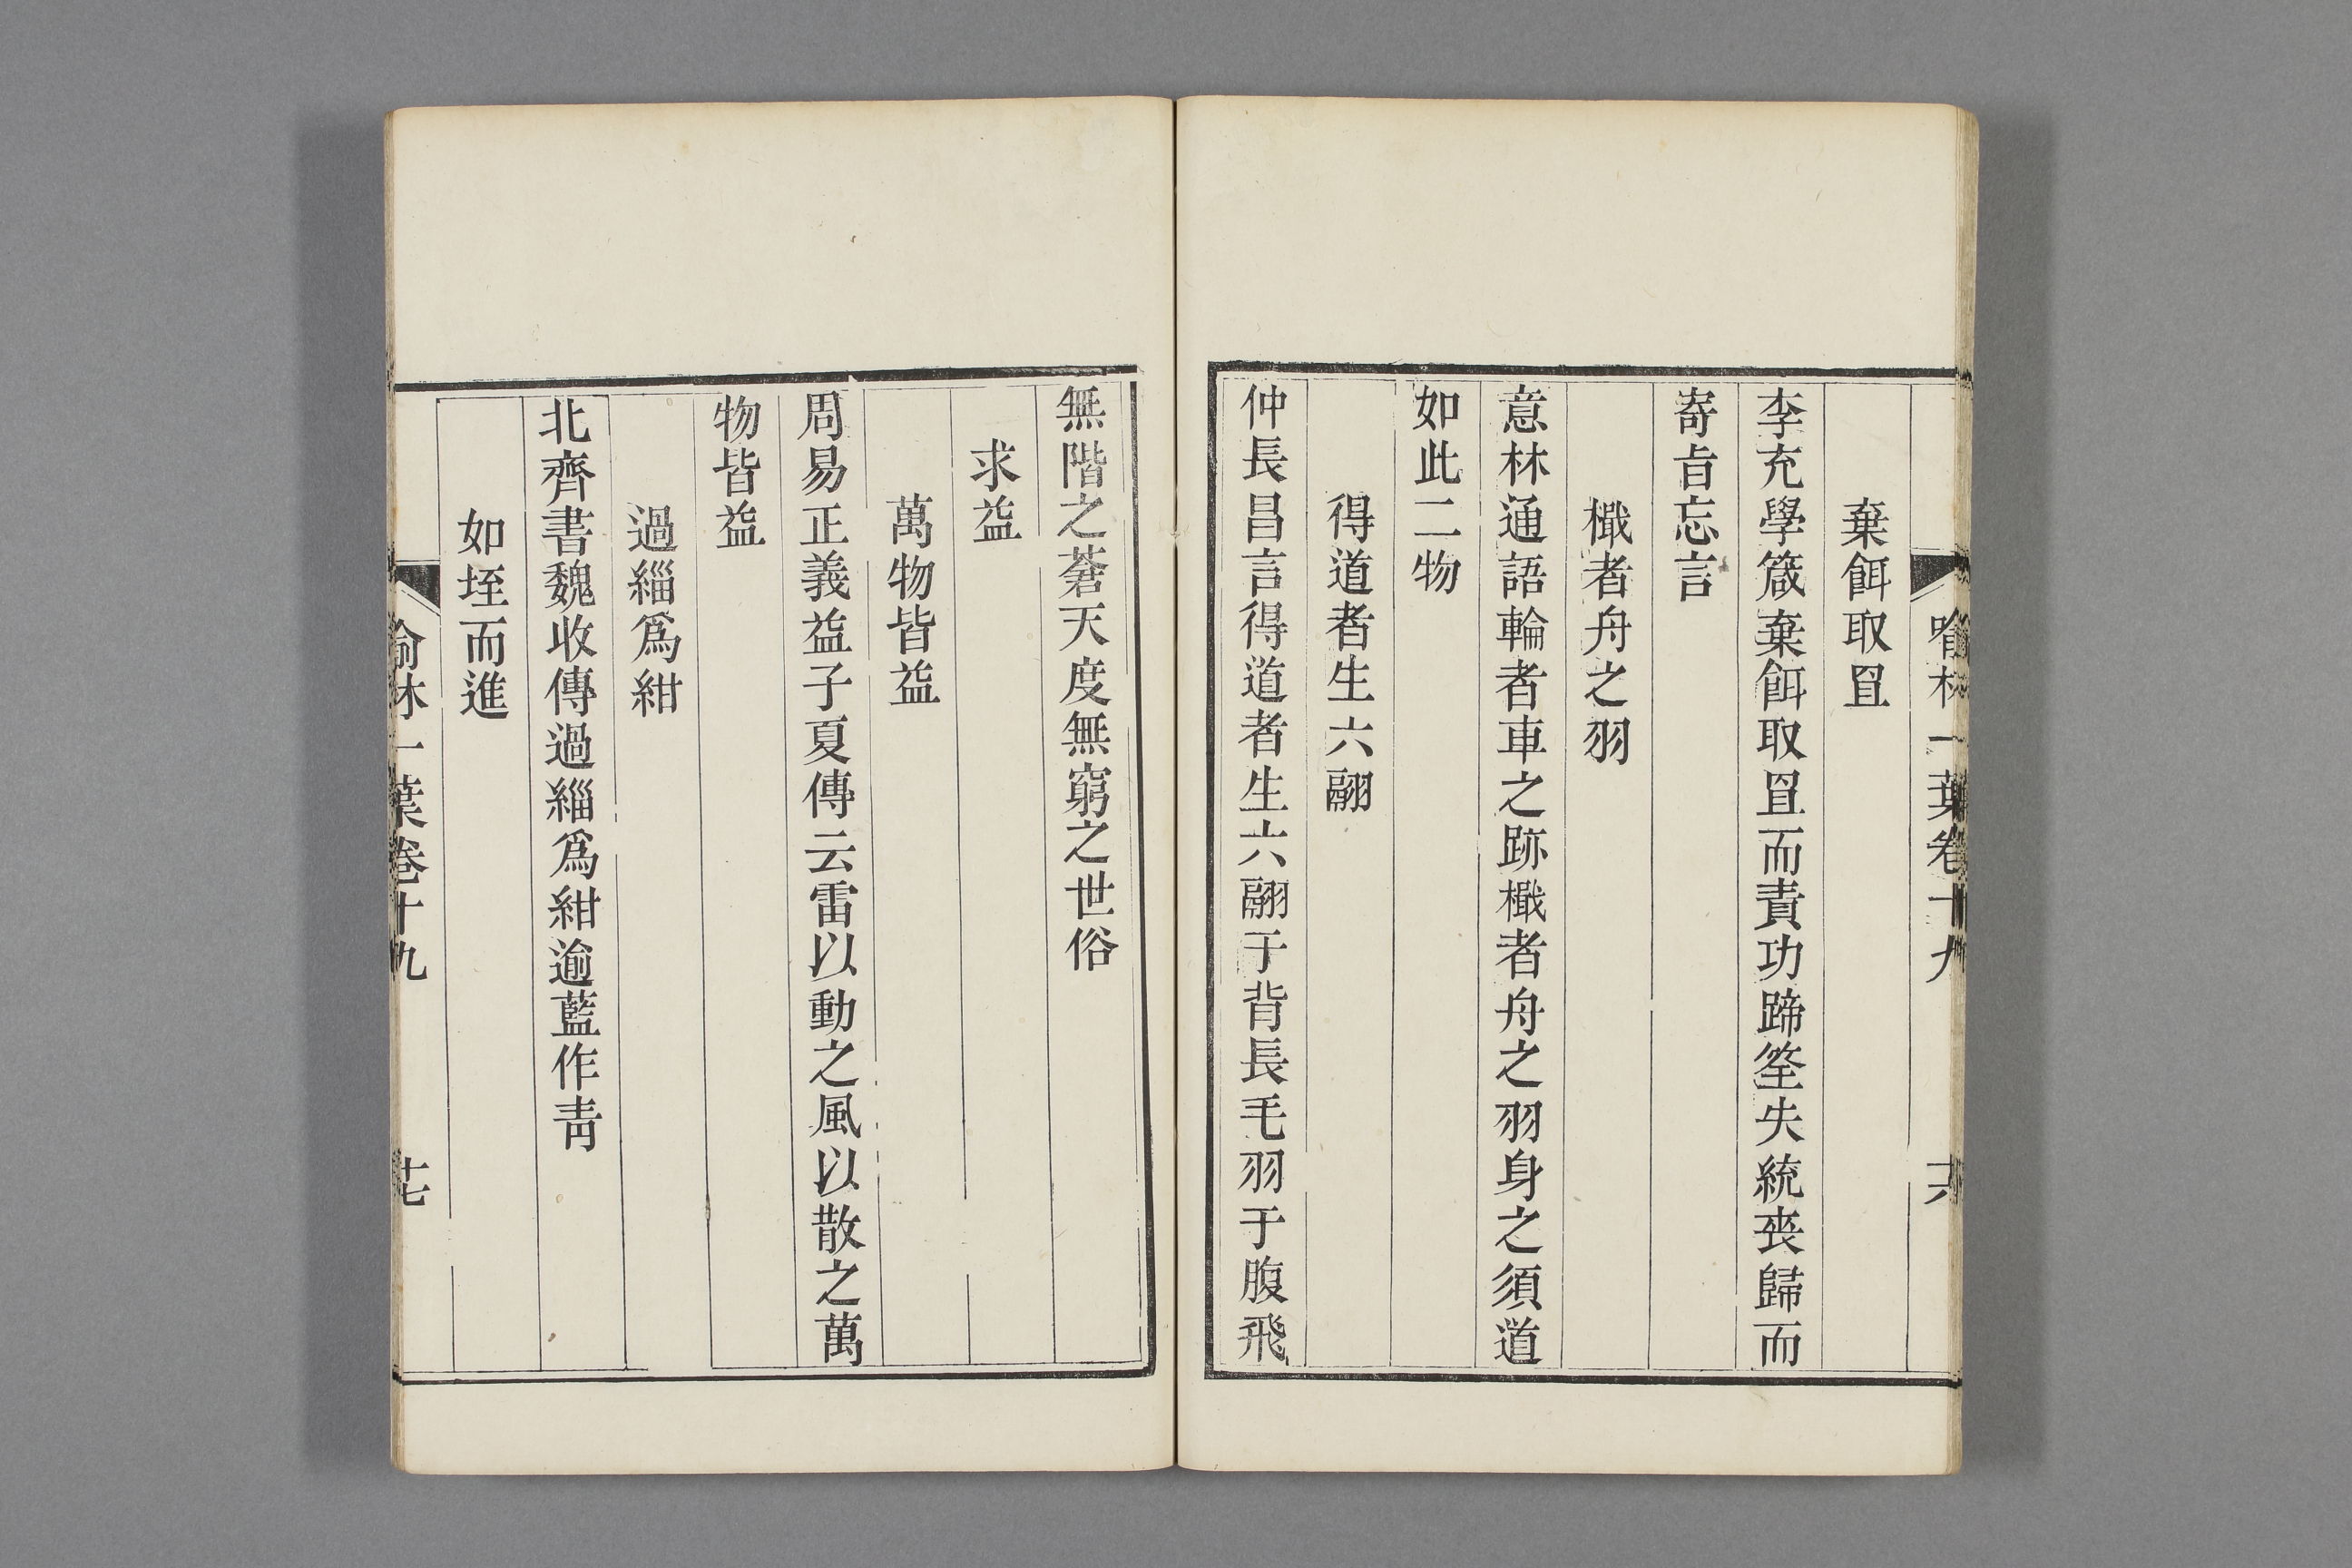 喻林一葉卷十九
十六
棄餌取罝
李充學箴棄餌取罝而責功蹄筌失統喪歸而
寄旨忘言
檝者舟之羽
意林通語輪者車之跡檝者舟之羽身之須道
如此二物
得道者生六翮
仲長昌言得道者生六翮于背長毛羽于腹飛
無階之蒼天度無窮之世俗
求益
萬物皆益
周易正義益子夏傳云雷以動之風以散之萬
物皆益
過緇爲紺
北齊書魏收傳過緇爲紺逾藍作青
如垤而進
喻林一葉卷十九
十七